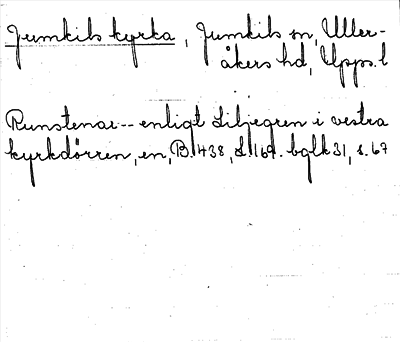 Jumkils kyrka, Jumkils sn, Uller-
åkers hd, Upps. l
Runstenar -- enligt Liljegren i vestra
kyrkdörren, en, B. 438, L. 169. bglk 31, s. 67